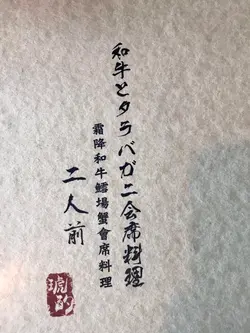 和牛とタラバガニ会席料理
霜降和牛鱈場蟹會席料理
二人前
琥酌